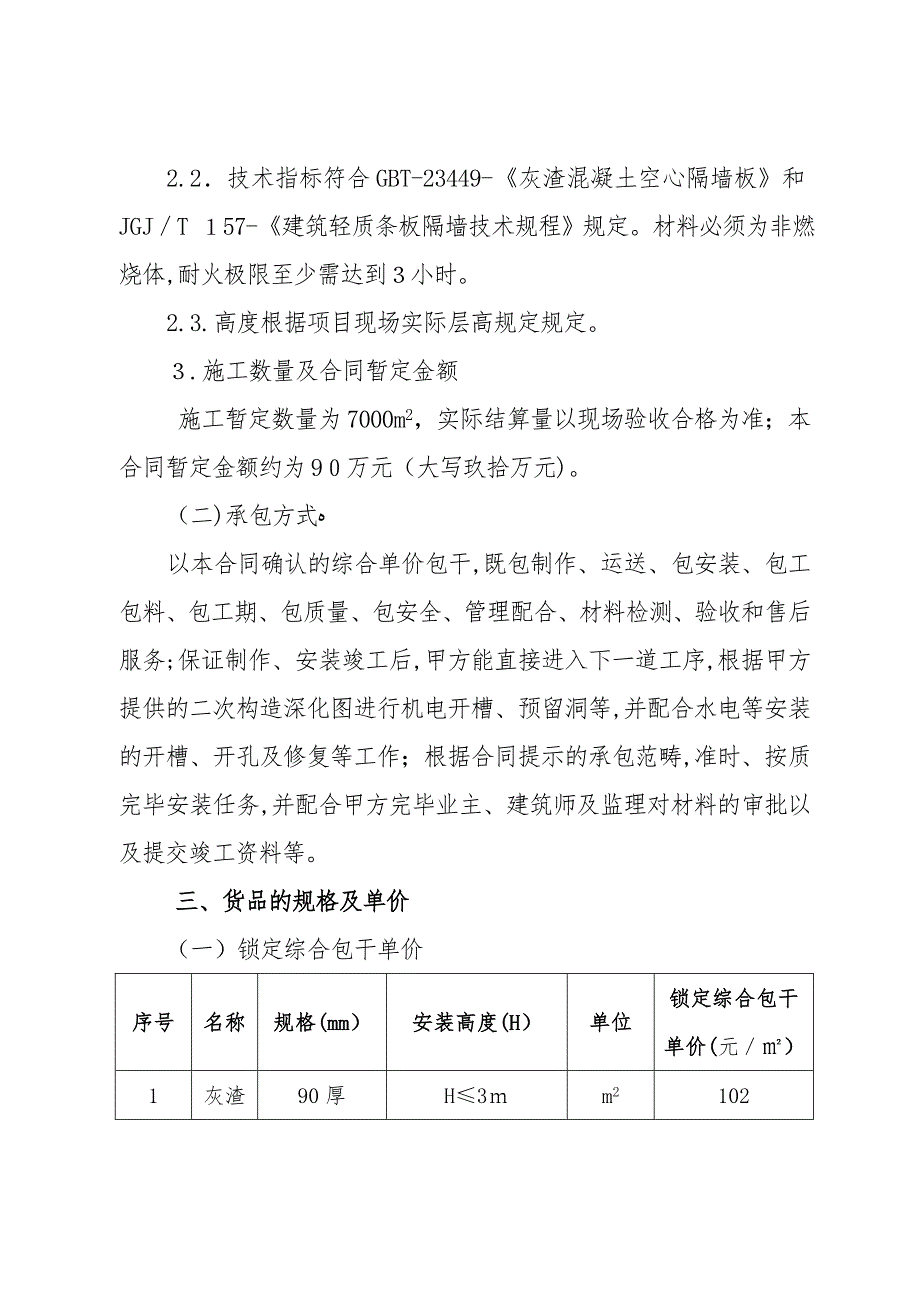 2.2．技术指标符合GBT-23449-《灰渣混凝土空心隔墙板》和
JGJ／T 157-《建筑轻质条板隔墙技术规程》规定。材料必须为非燃
烧体,耐火极限至少需达到３小时。
2.3.高度根据项目现场实际层高规定规定。
３.施工数量及合同暂定金额
施工暂定数量为7000m²，实际结算量以现场验收合格为准；本
合同暂定金额约为９0万元（大写玖拾万元)。
（二)承包方式。
以本合同确认的综合单价包干,既包制作、运送、包安装、包工
包料、包工期、包质量、包安全、管理配合、材料检测、验收和售后
服务;保证制作、安装竣工后,甲方能直接进入下一道工序,根据甲方
提供的二次构造深化图进行机电开槽、预留洞等,并配合水电等安装
的开槽、开孔及修复等工作；根据合同提示的承包范畴,准时、按质
完毕安装任务,并配合甲方完毕业主、建筑师及监理对材料的审批以
及提交竣工资料等。
三、货品的规格及单价
（一）锁定综合包干单价
序号 名称 规格(mm） 安装高度(H） 单位 锁定综合包干
单价(元／㎡）
1 灰渣 90厚 H≤3ｍ m² 102